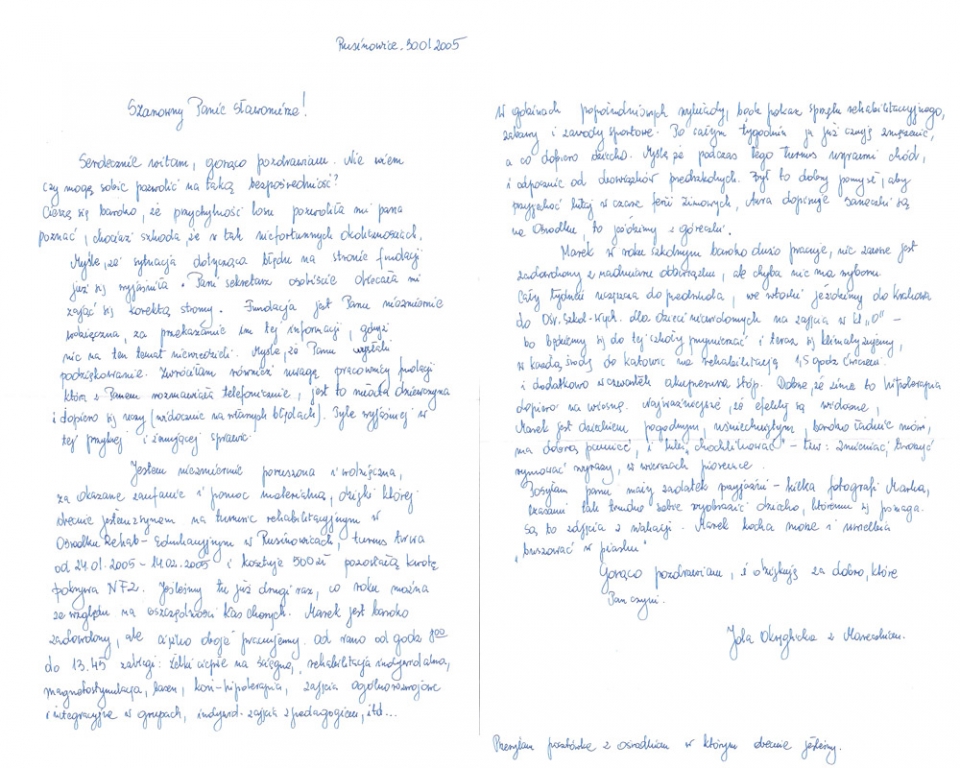 Rusinowice. 30.01.2005
Szanowny Panie Sławomirze!
Serdecznie witam, gorąco pozdrawiam. Nie wiem
czy mogę sobie pozwolić na taką bezpośredniość?
Cieszę się bardzo, że przychylność losu pozwoliła mi pana
poznać, chociaż szkoda, że w tak niefortunnych okolicznościach.
Myślę, że sytuacja dotycząca błędu na stronie fundacji
już się wyjaśniła. Pani sekretarz osobiście obiecała mi
zająć się korektą strony. Fundacja jest Panu niezmiernie
wdzięczna, za przekazanie im tej informacji, gdyż
nic na ten temat nie wiedzieli. Myślę, że Panu wysłali
podziękowanie. Zwróciłam również uwagę pracownicy fundacji
która z Panem rozmawiała telefonicznie, jest to młoda dziewczyna
i dopiero się uczy (widocznie na własnych błędach). Tyle wyjaśnień w
tej przykrej i żenującej sprawie.
Jestem niezmiernie poruszona i wdzięczna,
za okazane zaufanie i pomoc materialną, dzięki której
obecnie jestem z synem na turnusie rehabilitacyjnym w
Ośrodku Rehab-Edukacyjnym w Rusinowicach, turnus trwa
od 24.01.2005 - 14.02.2005 i kosztuje 500zł pozostałą kwotę
pokrywa NFZ. Jesteśmy tu już drugi raz, co roku można
ze względu na oszczędności kas chorych. Marek jest bardzo
zadowolony, ale ciężko oboje pracujemy. Od rana od godz 8oo
do 13.45 zabiegi: okłady ciepłe na ścięgna, rehabilitacja indywidualna,
magnetostymulacja, laser, koń-hipoterapia, zajęcia ogólnorozwojowe
i integracyjne w grupach, indywid. zajęcia z pedagogiem, itd...
W godzinach popołudniowych wykłady, bądź pokaz sprzętu rehabilitacyjnego,
zabawy i zawody sportowe. Po całym tygodniu ja już czuję zmęczenie,
a co dopiero dziecko. Myślę że podczas tego turnusu usprawni chód,
i odpocznie od obowiązków przedszkolnych. Był to dobry pomysł, aby
przyjechać tutaj w czasie ferii zimowych, Aura dopisuje saneczki są
we Ośrodku, to jeździmy z góreczki.
Marek w roku szkolnym bardzo dużo pracuje, nie zawsze jest
zadowolony z nadmiaru obowiązków, ale chyba nie ma wyboru.
Cały tydzień uczęszcza do przedszkola, we wtorki jeździmy do Krakowa
do Ośr. Szkol-Wych. dla dzieci niewidomych na zajęcia w kl „0" -
bo będziemy się do tej szkoły przymierzać i teraz się klimatyzujemy,
w każdą środę do Katowic na rehabilitację 1,5 godz ćwiczeń
i dodatkowo w czwartek akupresura stóp. Dobrze, że zima to hipoterapia
dopiero na wiosnę. Najważniejsze, że efekty są widoczne,
Marek jest dzieckiem pogodnym, uśmiechniętym, bardzo ładnie mówi,
ma dobrą pamięć, i lubi - tzw: zmieniać, tworzyć
rymować wyrazy, w wierszach piosence.
Posyłam panu mały zadatek przyjaźni - kilka fotografi Marka,
czasami tak trudno sobie wyobrazić dziecko, któremu się pomaga.
Są to zdjęcia z wakacji. Marek kocha morze i uwielbia
„buszować w piasku"
Gorąco pozdrawiam, i dziękuję za dobro, które
Pan czyni.
Jola z Mareczkiem.
Przesyłam pocztówkę z ośrodkiem w którym obecnie jesteśmy.